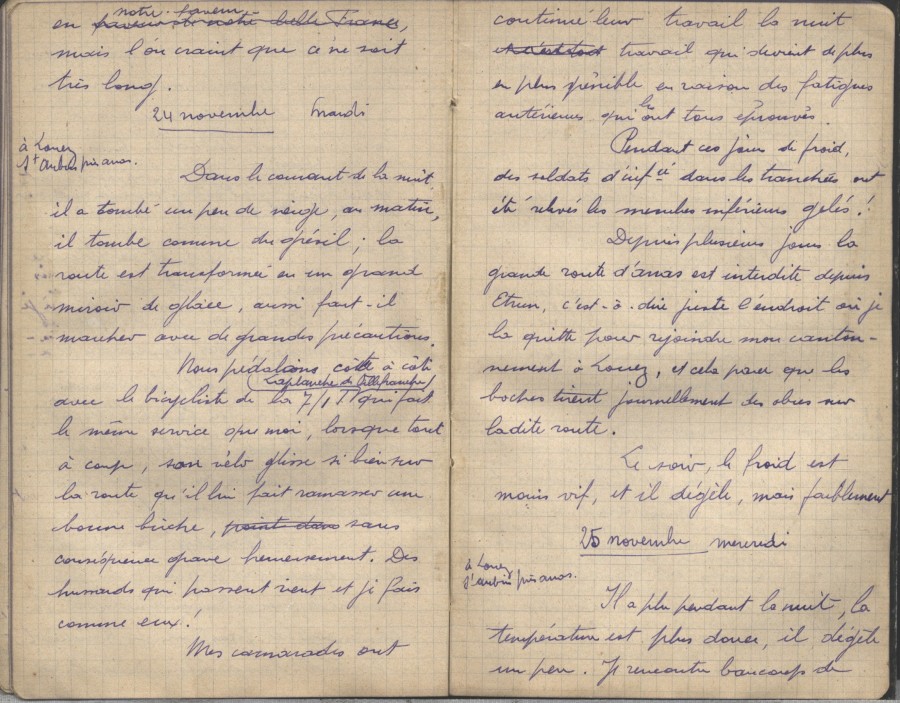 notre faveur
en faveur de notre belle France,
mais l'on craint que ce ne soit
très long.
24 novembre Mardi
à Louez
St Aubin près arras.
Dans le courant de la nuit,
il a tombé un peu de neige, au matin,
il tombe comme du grésil ; la
route est transformée en un grand
miroir de glace, aussi faut-il
marcher avec de grandes précautions.
Nous pédalions côte à côte
(Laplanche de Villefranche)
avec le bicycliste de la 7/1 T qui fait
le même service que moi, lorsque tout
à coup, son vélo glisse si bien sur
la route qu'il lui fait ramasser une
bonne bûche, sans
conséquence grave heureusement. Des
hussards qui passent rient et je fais
comme eux !
Mes camarades ont
continué leur travail la nuit
travail qui devient de plus
en plus pénible en raison des fatigues
antérieures qui les ont tous éprouvés.
Pendant ces jours de froid,
des soldats d'infie dans les tranchées ont
été relevés les membres inférieurs gelés !
Depuis plusieurs jours la
grande route d'arras est interdite depuis
Etrun, c'est-à-dire juste l'endroit où je
la quitte pour rejoindre mon canton-
nement à Louez, et cela parce que les
boches tirent journellement des obus sur
ladite route.
Le soir, le froid est
moins vif, et il dégèle, mais faiblement
25 novembre mercredi
à Louez
St aubin près arras.
Il a plu pendant la nuit, la
température est plus douce, il dégèle
un peu. Je rencontre beaucoup de